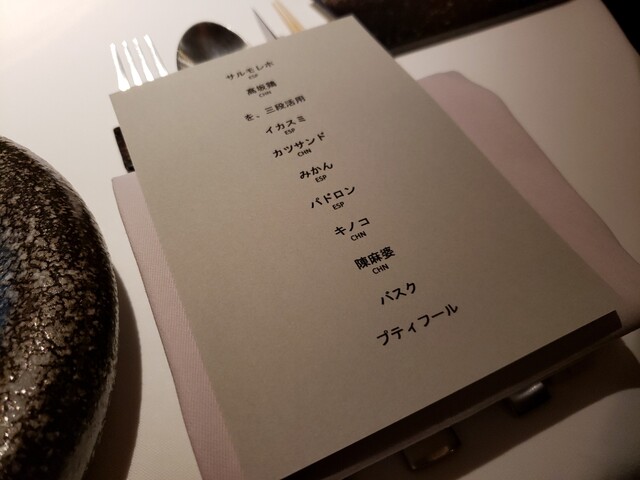 サルモレホ
ESP
高坂鶏
CHN
を、三段活用
イカスミ
ESP
カツサンド
CHN
みかん
ESP
パドロン
ESP
キノコ
CHN
陳麻婆
CHN
バスク
プティフール